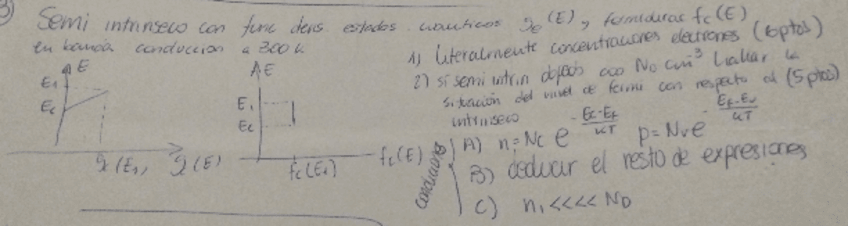 3) Semi intrinseco con func dens estados cuanticos gc(E), y fermiduras fc(E)
en banda conduccion a 300k
1) literalmente concentraciones electrones (6ptos)
2) si semi intrin dopado con ND cm-3 hallar la
situación del nivel de fermi con respecto al (5ptos)
intrinseco
E
E1
Ec
gc(E1) g(E)
E
E1
Ec
fc(E1) fc(E)
Condiciones
A) ni = Nc e - Ec-EF/KT p = Nv e - EF-Ev/KT
B) deducir el resto de expresiones
C) ni <<<< ND